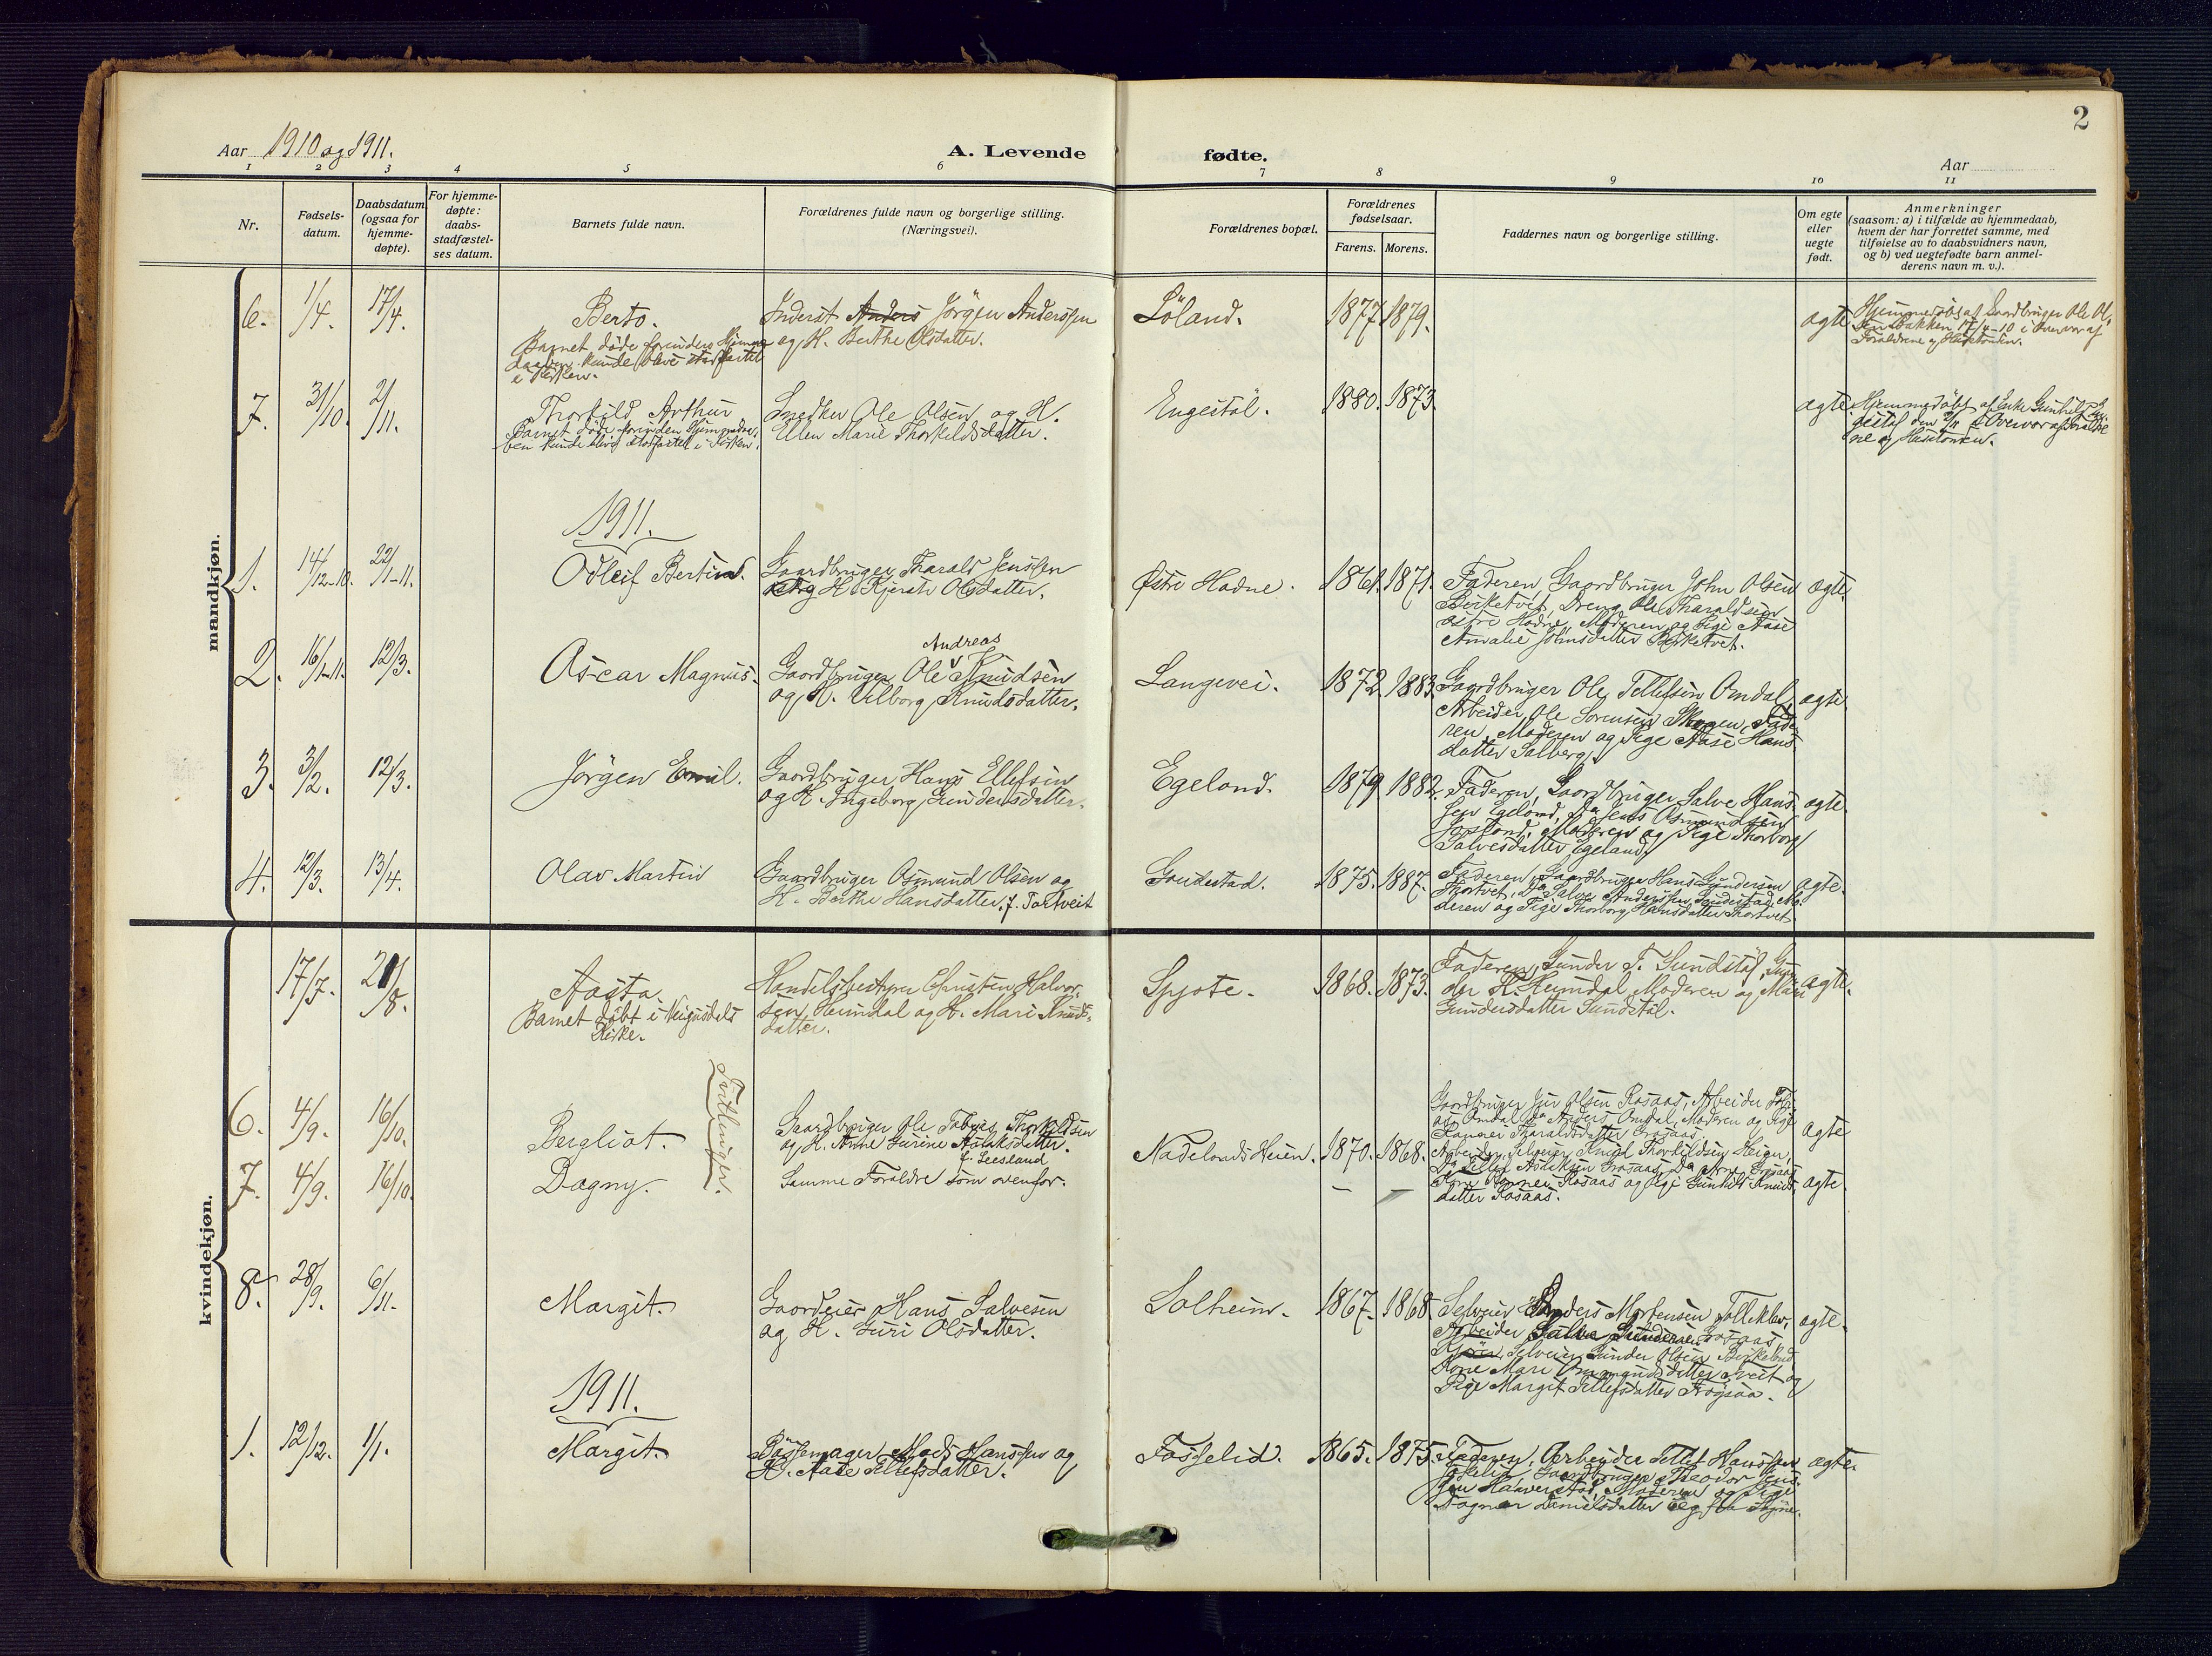 2
Aar 1910 og 1911.
A. Levende fødte.
Aar
1 2 3 4 5 6 7 8 9 10 11
Nr.
Fødsels-
datum.
Daabsdatum
(ogsaa for
hjemme-
døpte).
For hjemme-
døpte:
daabs-
stadfæstel-
ses datum.
Barnets fulde navn.
Forældrenes fulde navn og borgerlige stilling.
(Næringsvei).
Forældrenes bopæl.
Forældrenes
fødselsaar.
Farens. Morens.
Faddernes navn og borgerlige stilling.
Om egte
eller
uegte
født.
Anmerkninger
(saasom: a) i tilfælde av hjemmedaab,
hvem der har forrettet samme, med
tilføielse av to daabsvidners navn,
og b) ved uegtefødte barn anmel-
derens navn m. v.).
mandkjøn.
6. 1/4. 17/4.
Berto.
Barnet döde forinden Hjemme
daaben kunde blive stadfæstet
i Kirken.
Inderst Anders Jörgen Anderssen
og H. Berthe Olsdatter.
Löland. 1877. 1879. ægte
Hjemmedöbt af Gaardbruger Ole Ol.
17/4-10 i Overvær af
Forældrene og
7. 31/10. 2/11.
Thorkild Arthur
Barnet döde forinden Hjemmedaa,
ben kunde blive stadfæstet i Kirken.
Snedker Ole Olsen og H.
Ellen Marie Thorkildsdatter.
Engestöl. 1880. 1873. ægte.
Hjemmedöbt af Enke Gunhild En,
gestöl den 2/11 i Overvær af Forældre
ne og
1911.
1. 14/12-10. 22/1-11.
Odleif Bertin.
Gaardbruger Tharald Jenssen
og H. Kjersti Olsdatter.
Østre Hodne. 1861. 1871.
Faderen, Gaardbruger John Olsen
Birketvet, Dreng Ole Tharaldsen
östre Hodne, Moderen og Pige Aase
Amalie Johnsdatter Birketvet.
ægte.
2. 16/1-11. 12/3.
Oscar Magnus.
Andreas
Gaardbruger Ole Knudsen
og H. Vilborg Knudsdatter.
Langevei. 1872. 1883.
Gaardbruger Ole Tellefsen Omdal,
Arbeider Ole Sörensen Skogen, Fade
ren, Moderen og Pige Aase Hans
datter Solberg.
ægte.
3. 3/2. 12/3.
Jörgen Emil.
Gaardbruger Hans Ellefsen
og H. Ingeborg Gundersdatter.
Egeland. 1879. 1882.
Faderen, Gaardbruger Salve Hans
sen Egeland, Da Jens Osmundsen
Moderen og Pige Thorborg
Salvesdatter Egeland.
ægte.
4. 12/3. 13/4.
Olav Martin
Gaardbruger Osmund Olsen og
H. Berthe Hansdatter. f. Tortveit
Goudestad. 1875. 1887.
Faderen, Gaardbruger Hans Gundersen
Thortvet, Da Salve Anderssen Goudestad, Mo
deren og Pige Thorborg Hansdatter Thortvet
ægte.
kvindekjøn.
17/7. 20/8.
Aasta
Barnet döbt i Veigusdals
Kirke.
Handelsbestyrer Christen Halvor,
sen Heimdal og H. Mari Knuds,
datter.
Spjote. 1868. 1873.
Faderen, Gunder T. Sundstöl, Gun
der K. Heimdal Moderen og Mari
Gundersdatter Sundstöl.
ægte.
Tvillinger.
6. 4/9. 16/10.
Bergliot.
Gaardbruger Ole Tobias Thorkildsen
og H. Anne Gurine Aanaksdatter.
f. Leesland
Nadelands Heien. 1870. 1868.
Gaardbruger Jens Olsen Rosaas, Arbeider
Omdal, Da Anders Omdal, Moderen og Pige
Tharaldsdatter Grosaas
ægte
7. 4/9. 16/10.
Dagny.
Samme Forældre som ovenfor.
– –
Arbeider, Selveier Knud Thorkildsen Heien,
Da Tellef Grosaas, Da Arne Grosaas
Kone Rosaas og Pige Gunhild Knuds,
datter Rosaas.
ægte.
8. 28/9. 6/11.
Margit.
Gaardeier Hans Salvesen
og H. Guri Olsdatter.
Solheim. 1867. 1868.
Selveier Anders Mortensen Tolleklev,
Arbeider Salve Gundersen Grosaas,
Selveier Gunder Olsen
Kone Mari Omundsdatter Tveit og
Pige Margit Tellefsdatter
ægte.
1911.
1. 12/12. 1/1.
Margit.
Bössemager Mads Hanssen og
H. Aase Tellefsdatter.
Fosselid. 1865. 1875.
Faderen, Arbeider Tellef Hanssen
Fosselid, Gaardbruger Theodor Jens,
sen Haaverstad, Moderen og Pige
Dagmar Danielsdatter
ægte.